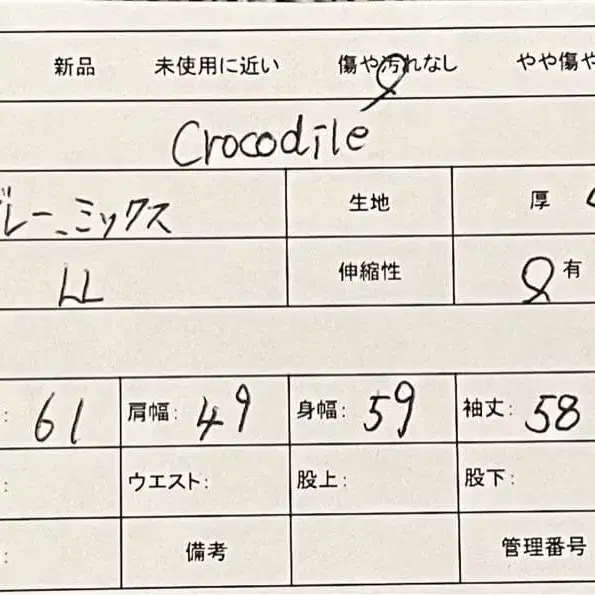 新品 未使用に近い 傷や汚れなし やや傷や
Crocodile
グレー、ミックス 生地 厚
LL 伸縮性 有
: 61 肩幅: 49 身幅: 59 袖丈: 58
: ウエスト: 股上: 股下:
: 備考 管理番号